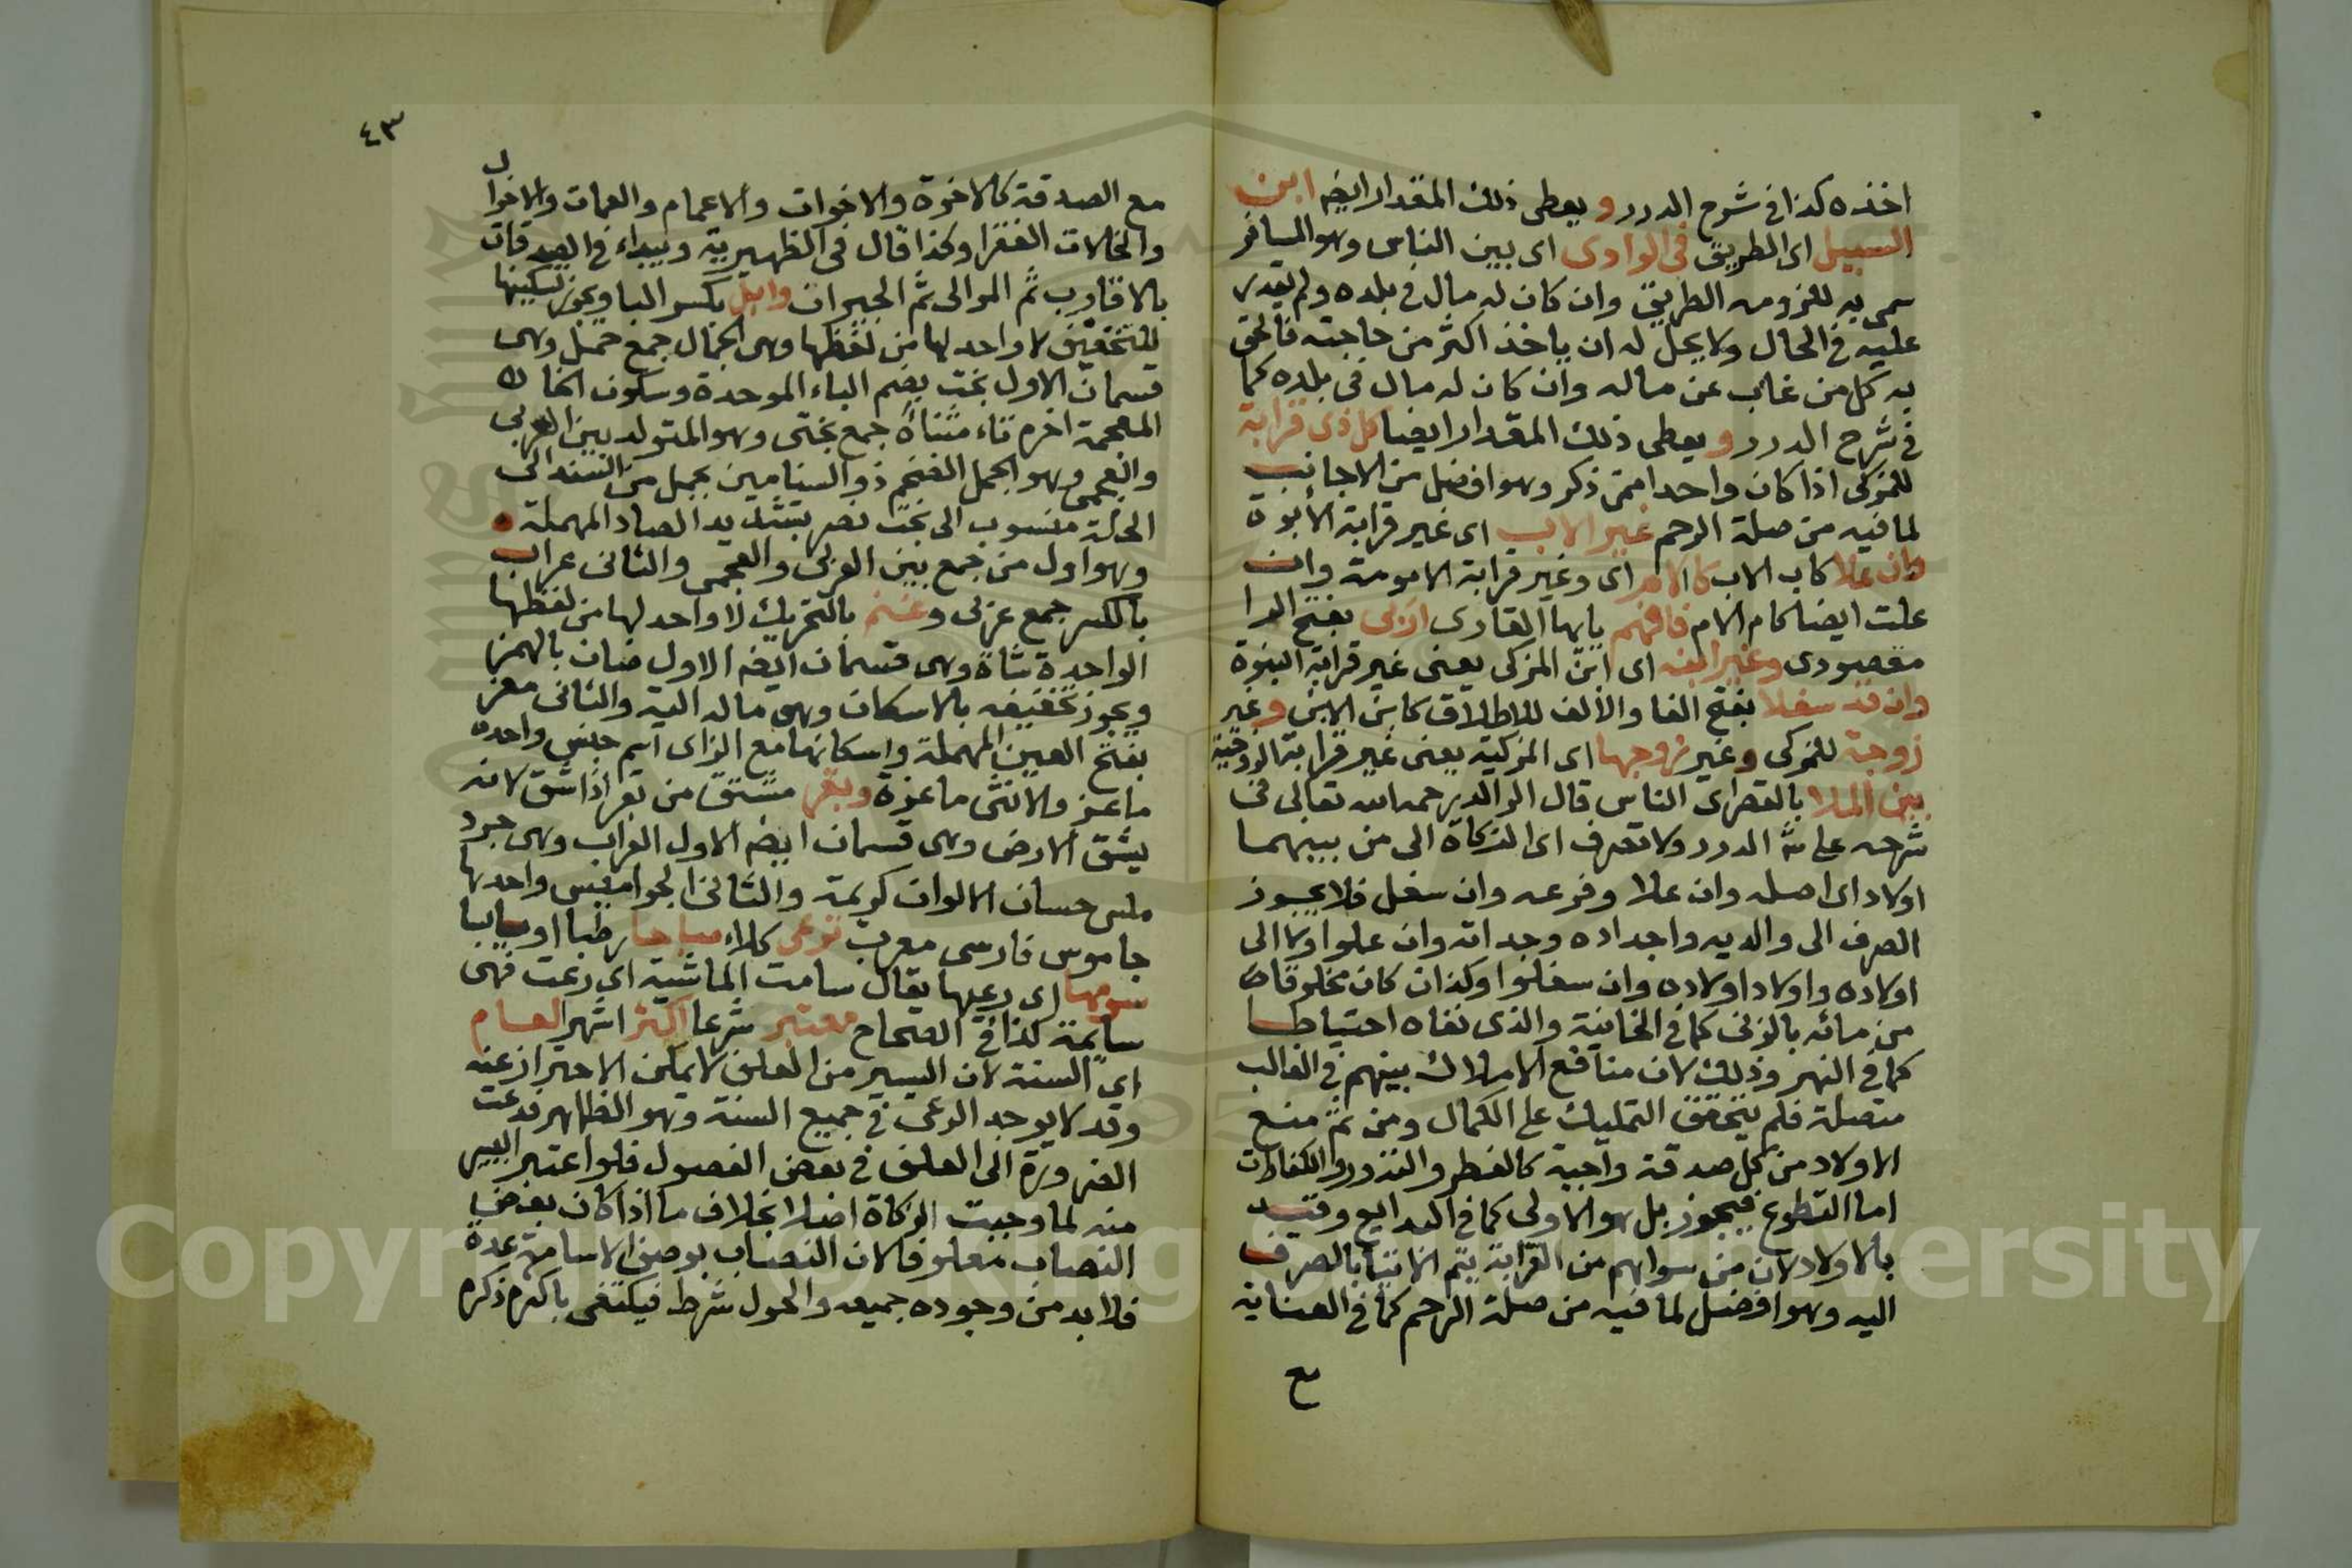 اخذه كذا فى شرح الدرر و يعطى ذلك المقدار ايضه ابن
السبيل اى الطريق فى الوادى اى بين الناس وهو المسافر
سمى به للزومه الطريق وان كان له مال فى بلده ولم يقدر
عليه فى الحال ولا يحل له ان ياخذ اكثر من حاجته فالحق
به كل من غاب عن ماله وان كان له مال فى بلده كما
فى شرح الدرر و يعطى ذلك المقدار ايضا كل ذى قرابة
للمزكى اذا كان واحدا ممن ذكر وهو افضل من الاجانب
لما فيه من صلة الرحم غير الاب اى غير قرابة الأبوة
وان علا كاب الاب كالام اى وغير قرابة الامومة وان
علت ايضا كام الام فافهم يا ايها القارى اربى بفتح الرا
مقصودى وغير ابنه اى ابن المزكى يعنى غير قرابة البنوة
وان قد سفلا بفتح الفا والألف للاطلاق كابن الابن وغير
زوجة للمزكى وغير زوجها اى المزكية يعنى غير قرابة الزوجية
بين الملا بالقصر اى الناس قال الوالد رحمه الله تعالى فى
شرحه على ش الدرر ولا تصرف اى الزكاة الى من بينهما
اولاد اى اصله وان علا وفرعه وان سفل فلا يجوز
الصرف الى والديه واجداده وجداته وان علوا ولا الى
اولاده واولاد اولاده وان سفلوا وكذا ان كان مخلوقا
من مائه بالزنى كما فى الخانية والذى نفاه احتياطا
كما فى النهر وذلك لان منافع الاملاك بينهم فى الغالب
متصلة فلم يتحقق التمليك على الكمال ومن ثم منع
الاولاد من كل صدقة واجبة كالفطر والنذور والكفارات
اما التطوع فيجوز بل هو الاولى كما فى البدايع وقيد
بالاولاد لان من سواهم من القرابة يتم الاتيتا بالصرف
اليه وهو افضل لما فيه من صلة الرحم كما فى العناية
مع
٤٣
مع الصدقة كالاخوة والاخوات والاعمام والعمات والاخوال
والخالات الفقرا وكذا قال فى الظهيرية ويبداء فى الصدقات
بالاقارب ثم الموالى ثم الجيران وابل بكسر البا ويجوز تسكينها
للتخفيف لا واحد لها من لفظها وهى الجمال جمع جمل وهى
قسمان الاول بخت بضم الباء الموحدة وسكون الخا
المعجمة اخره تاء مثناة جمع بختى وهو المتولد بين العربى
والعجمى وهو الجمل الضخم ذو السنامين يحمل من السند الى
الحلة منسوب الى بخت نصر بتشديد الصاد المهملة
وهو اول من جمع بين العربى والعجمى والثانى عراب
بالكسر جمع عربى وغنم بالتحريك لا واحد لها من لفظها
الواحدة شاة وهى قسمان ايضه الاول ضان بالهمز
ويجوز تخفيفه بالاسكان وهى ماله الية والثانى معز
بفتح العين المهملة واسكانها مع الزاى اسم جنس واحده
ماعز والانثى ماعزة وبقر مشتق من بقر اذا شق لانه
يشق الارض وهى قسمان ايضه الاول العراب وهى جرد
ملس حسان الالوان كريمة والثانى الجواميس واحدها
جاموس فارسى معرب ترعى كلاء مباحا رطبا او يابسا
سومها اى رعيها يقال سامت الماشية اى رعت فهى
سايمة كذا فى الصحاح معتبر شرعا اكثر اشهر العام
اى السنة لان اليسير من العلف لا يمكن الاحتراز عنه
وقد لا يوجد الرعى فى جميع السنة وهو الظاهر فدعت
الضرورة الى العلف فى بعض الفصول فلو اعتبر اليسير
منه لما وجبت الزكاة اصلا بخلاف ما اذا كان بعض
النصاب معلوفا لان النصاب بوصف الاسامة عدة
فلا بد من وجوده جميعه والحول شرط فيكتفى باكثره ذكره
Copyright © King Saud University